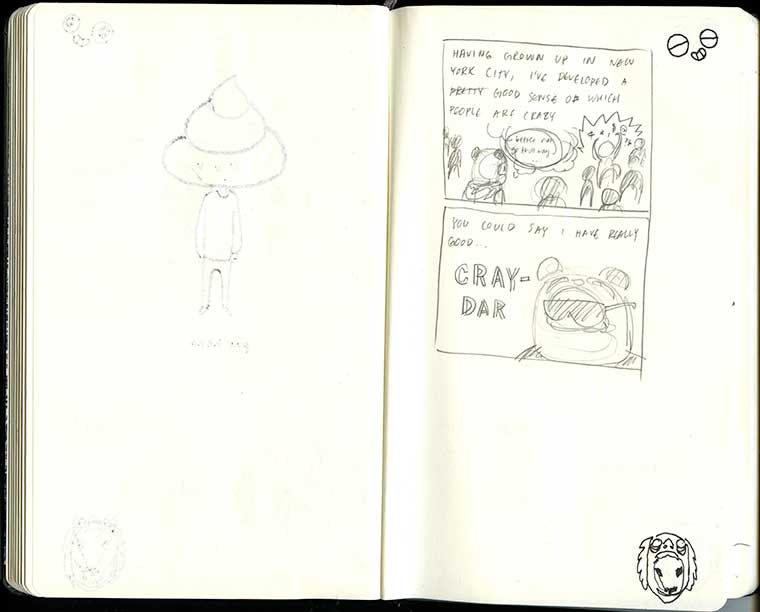 HAVING GROWN UP IN NEW
YORK CITY, I'VE DEVELOPED A
PRETTY GOOD SENSE OF WHICH
PEOPLE ARE CRAZY
better not
go that way
YOU COULD SAY I HAVE REALLY
GOOD...
CRAY-
DAR